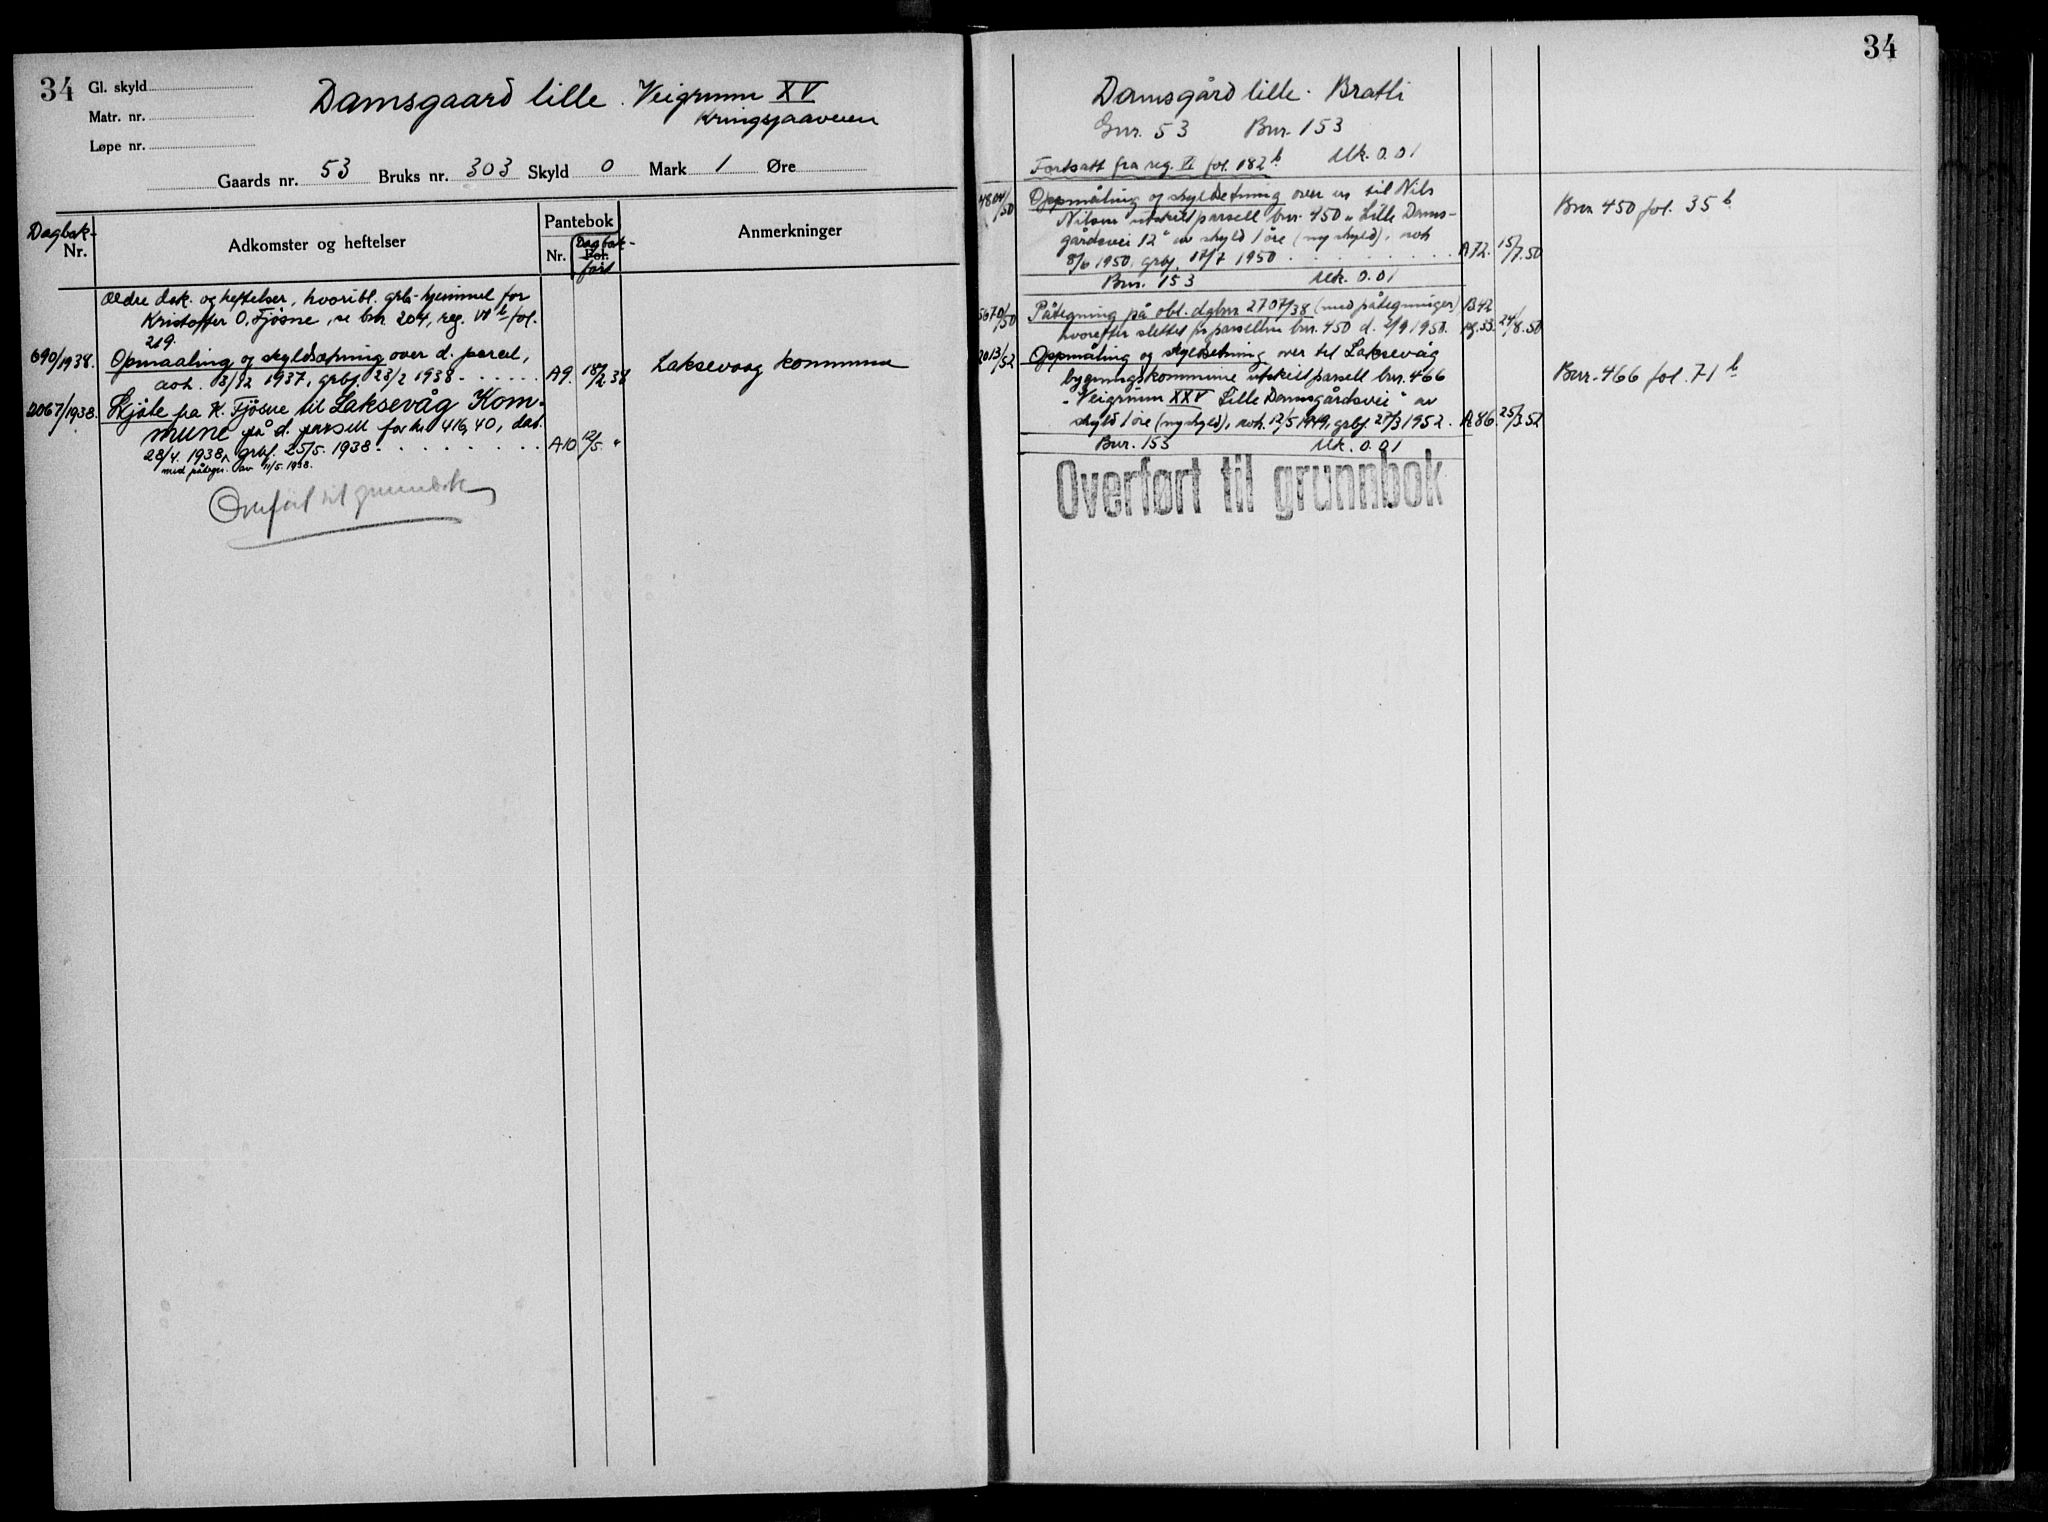 34
Gl. skyld
Matr. nr.
Løpe nr.
Damsgaard lille. Veigrunn XV
Kringsjaaveien
Gaards nr. 53 Bruks nr. 303 Skyld 0 Mark 1 Øre
Dagbok-
Nr.
Adkomster og heftelser
Pantebok
Nr.
Dagbok-
Fol.
ført
Anmerkninger
Ældre dok. og heftelser, hvoribl. grb-hjemmel for
Kristoffer O. Fjøsne, se bnr 204, reg. VI b fol.
219.
690/1938. Opmaaling og skyldsætning over d. parcel,
avh. 3/12 1937, grbf. 23/2 1938 . . . . . . A9. 18/2 38 Laksevaag kommune
2067/1938. Skjøte fra K. Fjøsne til Laksevåg Kom-
mune på d. parsell for kr 416,40, dat.
28/4. 1938, grbf. 25/5. 1938 . . . . . . . . A10 12/5. "
med påtegn. av 11/5. 1938.
Overført til grunnbok
34
Damsgård lille. Bratli
Gnr. 53 Bnr. 153
Fortsatt fra reg. VI fol. 182 b Mk. 0.01
4804/50 Oppmåling og skyldsetning over en til Nils
Nilsen utskilt parsell bnr. 450 „Lille Dams-
gårdsvei 12" av skyld 1 øre (ny skyld), avh
8/6 1950, grbf. 17/7 1950 . . . . . . . . A72. 15/7.50 Bnr 450 fol. 35 b
Bnr. 153 Mk. 0.01
5670/50 Påtegning på obl. dgbnr 2707/38 (med påtegninger) B42
hvorefter slettet for parsellen bnr. 450 d. 2/9 1950. pg.53. 24/8.50
2013/52 Oppmåling og skyldsetning over til Laksevåg
bygningskommune utskilt parsell bnr. 466
„Veigrunn XXV Lille Damsgårdsvei" av
skyld 1 øre (ny skyld), avh. 12/5 1949, grbf. 27/3 1952. A86. 25/3.52
Bnr. 466 fol. 71 b
Bnr. 153 Mk. 0.01
Overført til grunnbok